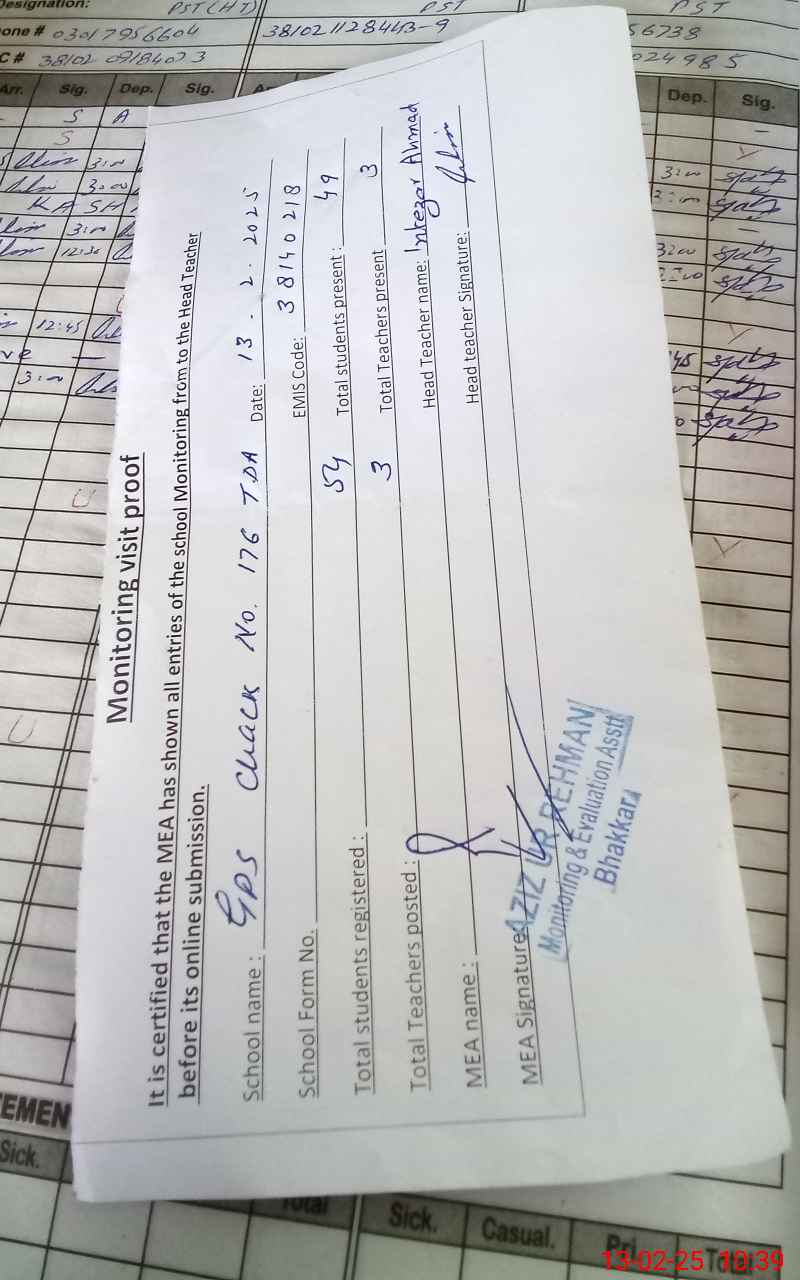 Designation: PST(HT) PST PST
one # 03017956604 381021128443-9 56738
C # 38102 09184073 024985
Arr. Sig. Dep. Sig. Dep. Sig.
Monitoring visit proof
It is certified that the MEA has shown all entries of the school Monitoring from to the Head Teacher
before its online submission.
School name : GPS Chack No. 176 TDA Date: 13 - 2 - 2025
School Form No. EMIS Code: 38140218
Total students registered : 54 Total students present : 49
Total Teachers posted : 3 Total Teachers present 3
MEA name : Head Teacher name: Intezar Ahmad
MEA Signature Head teacher Signature:
AZIZ UR REHMAN
Monitoring & Evaluation Asstt
Bhakkar
Sick. Total Sick. Casual. Pri. Total
13-02-25 10:39